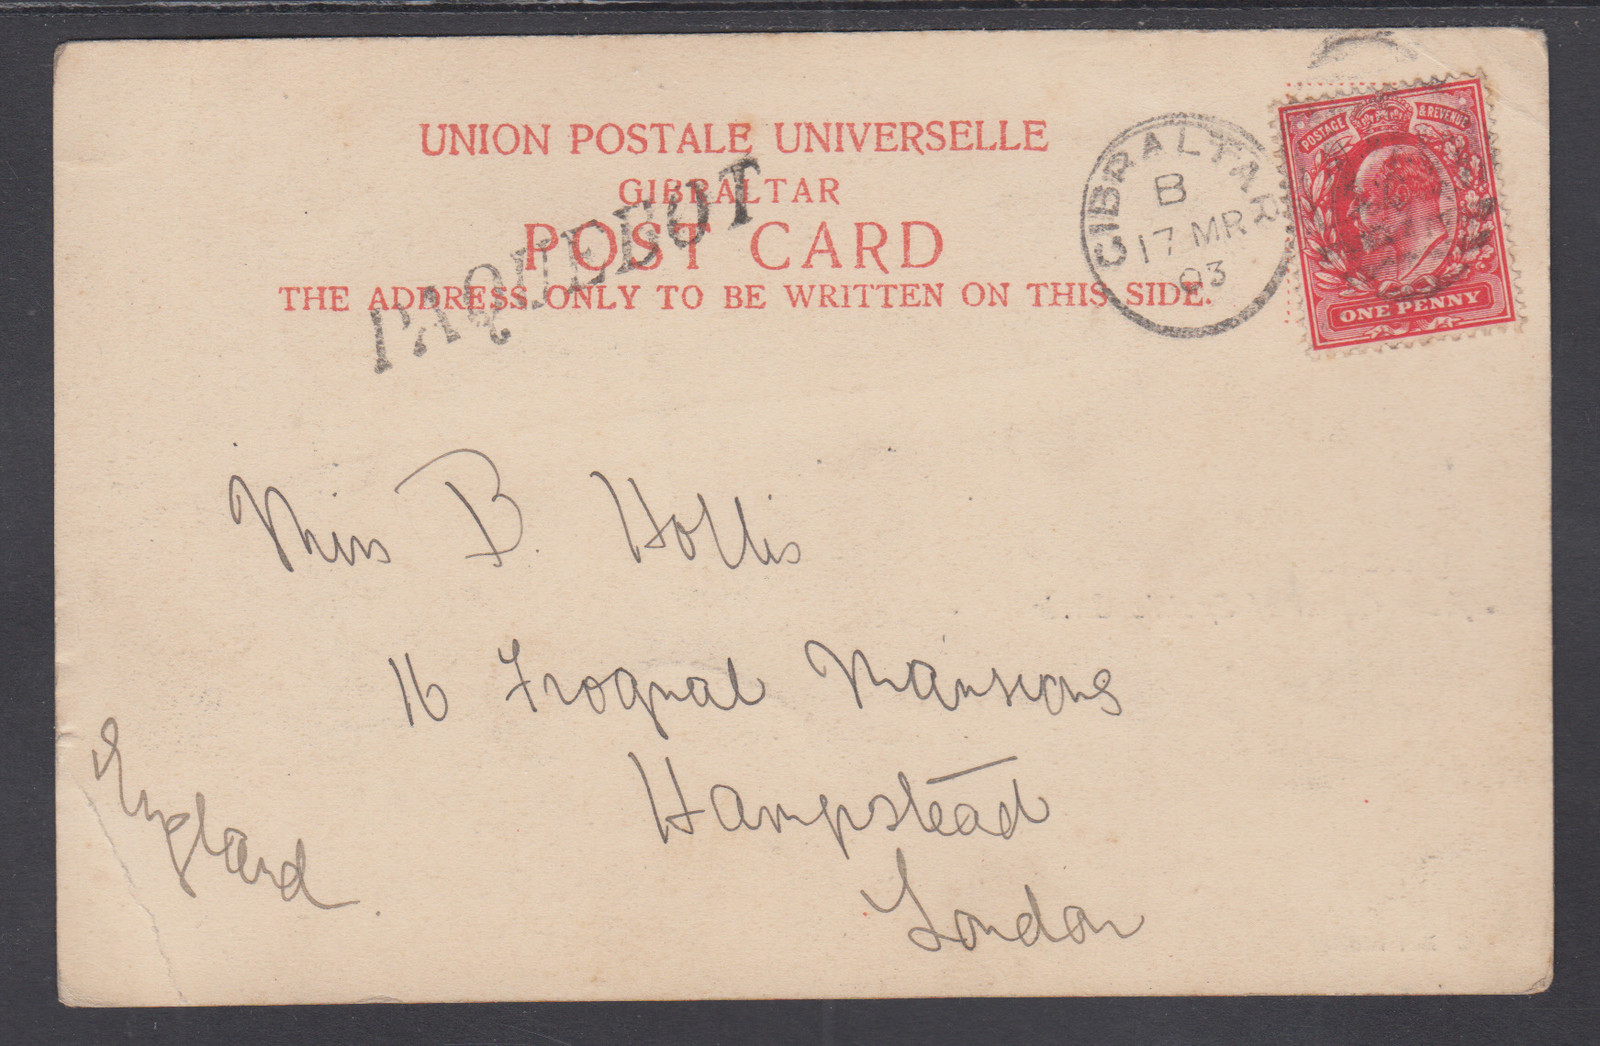 UNION POSTALE UNIVERSELLE
GIBRALTAR
POST CARD
THE ADDRESS ONLY TO BE WRITTEN ON THIS SIDE.
PAQUEBOT
GIBRALTAR
B
17 MR
03
POSTAGE & REVENUE
ONE PENNY
Miss B. Hollis
16 Frognal Mansions
Hampstead
London
England.